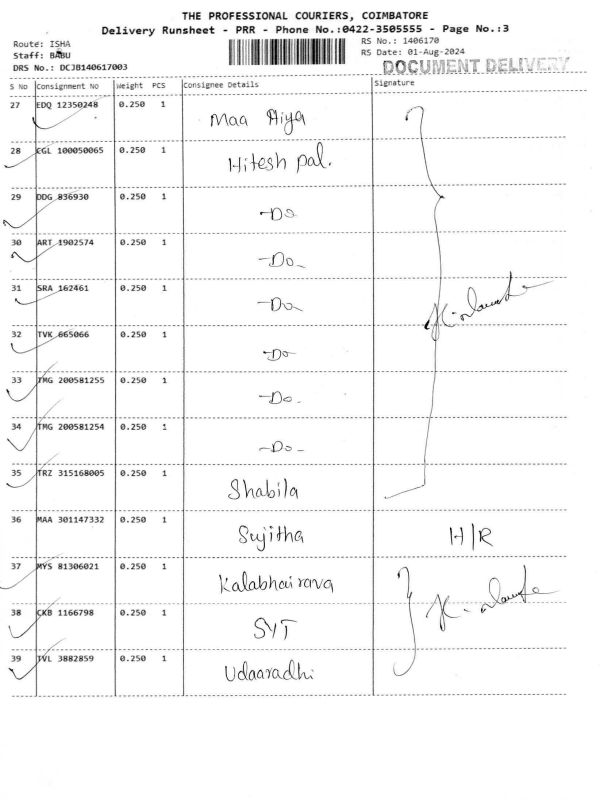 THE PROFESSIONAL COURIERS, COIMBATORE
Delivery Runsheet - PRR - Phone No.:0422-3505555 - Page No.:3
Route: ISHA
Staff: BABU
DRS No.: DCJB140617003
RS No.: 1406170
RS Date: 01-Aug-2024
DOCUMENT DELIVERY
S No Consignment No Weight PCS Consignee Details Signature
27 EDQ 12350248 0.250 1 Maa Aiya
28 CGL 100050065 0.250 1 Hitesh pal.
29 DDG 836930 0.250 1 -Do
30 ART 1902574 0.250 1 -Do-
31 SRA 162461 0.250 1 -Do-
32 TVK 665066 0.250 1 -Do
33 TMG 200581255 0.250 1 -Do-
34 TMG 200581254 0.250 1 -Do-
35 TRZ 315168005 0.250 1 Shabila
36 MAA 301147332 0.250 1 Sujitha H/R
37 MYS 81306021 0.250 1 Kalabhairava
38 CKB 1166798 0.250 1 SYT
39 TVL 3882859 0.250 1 Udaaradhi